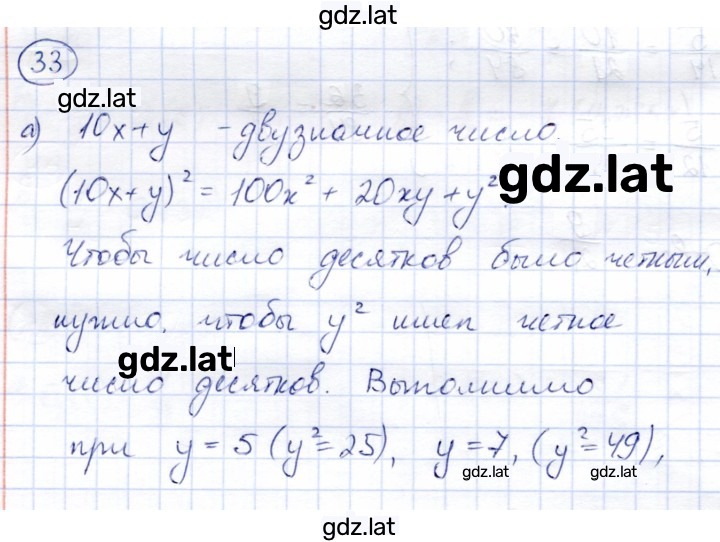 gdz.lat
33
gdz.lat
а) 10x+y - двузначное число.
(10x+y)² = 100x² + 20xy + y².
gdz.lat
Чтобы число десятков было четным,
нужно, чтобы y² имел четное
gdz.lat
число десятков. Выполнимо
при y = 5 (y²=25), y = 7, (y²=49),
gdz.lat gdz.lat
gdz.lat